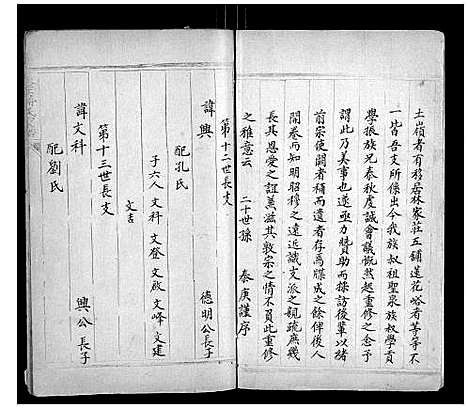 土嶺者有移居林家莊五鋪蓮花峪者等等不
一皆吾支所係出今我族叔祖聖泉族叔學貢
學振族兄春秋虔誠會議慨然起重修之念予
謂此乃美事也遂亟力贊助而採訪後輩以緒
前宗使闕者補而遺者存焉牒成之餘俾後人
開卷而知明昭穆之遠近識支派之親疏庶幾
長其恩愛之誼篤滋其敦宗之情不負此重修
之雅意云
二十世孫 泰庚謹序
第十二世長支
諱興 德明公長子
配孔氏
子六人 文科 文登 文啟 文峰 文建
文吉
第十三世長支
諱文科 興公長子
配劉氏